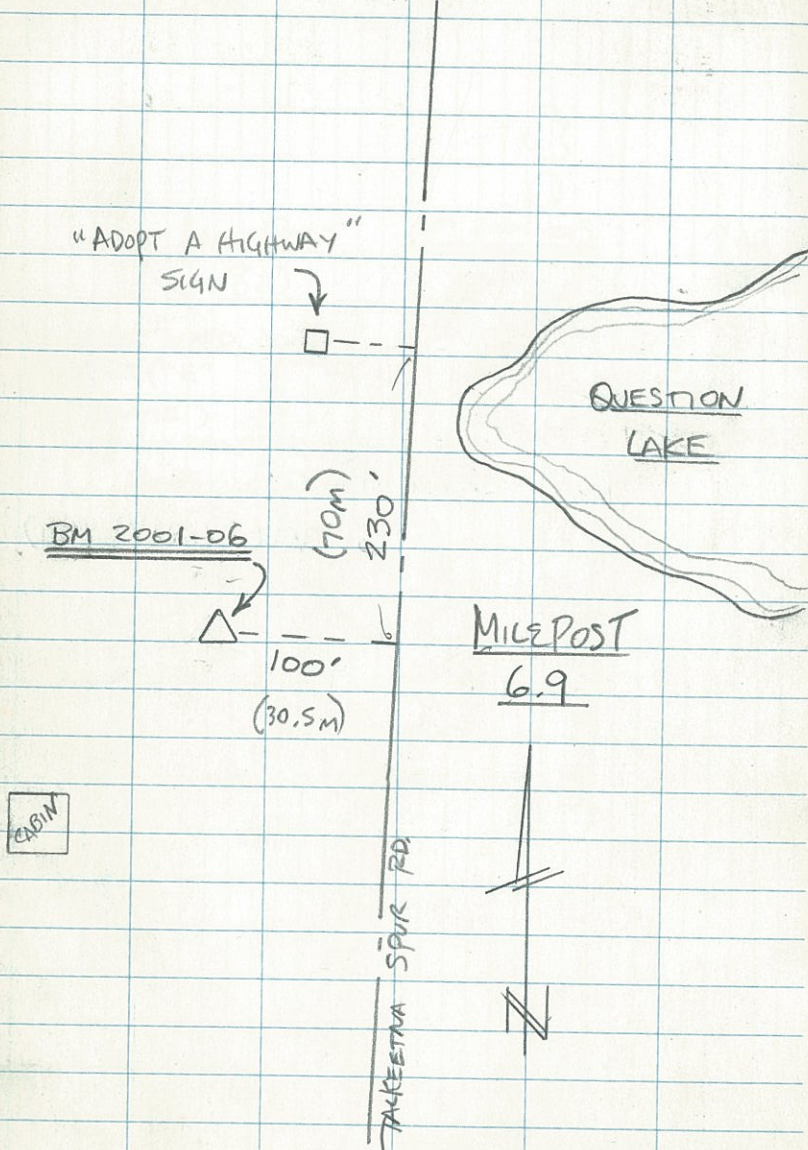 "ADOPT A HIGHWAY"
SIGN
QUESTION
LAKE
(70M)
230'
BM 2001-06
100'
(30.5M)
MILEPOST
6.9
CABIN
TALKEETNA SPUR RD.
N